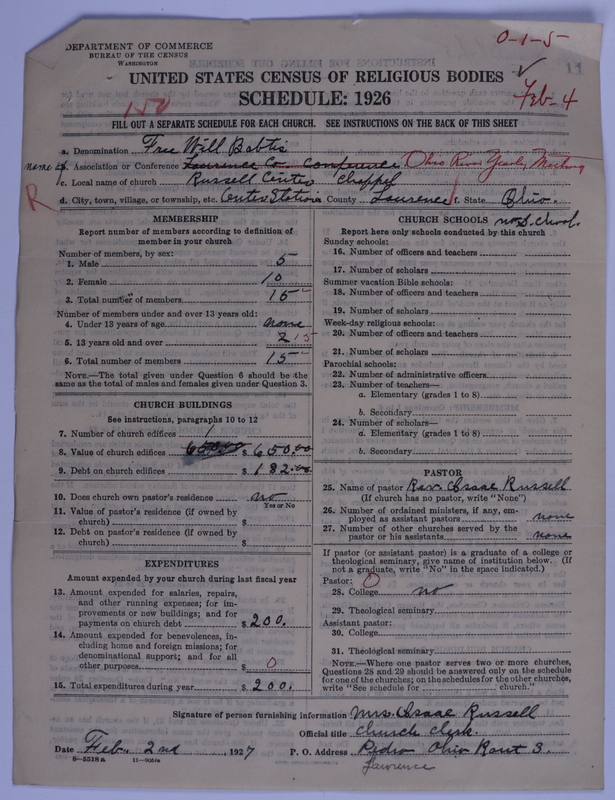 DEPARTMENT OF COMMERCE
BUREAU OF THE CENSUS
WASHINGTON
0-1-5
11
UNITED STATES CENSUS OF RELIGIOUS BODIES
SCHEDULE: 1926
150
Feb-4
FILL OUT A SEPARATE SCHEDULE FOR EACH CHURCH. SEE INSTRUCTIONS ON THE BACK OF THIS SHEET
a. Denomination Free Will Babtis
name of b. Association or Conference Lawrence Co. Conference Ohio River Yearly Meeting
c. Local name of church Russell Center Chappel
R
d. City, town, village, or township, etc. Center Station e. County Lawrence f. State Ohio.
MEMBERSHIP
Report number of members according to definition of
member in your church
Number of members, by sex:
1. Male 5
2. Female 10
3. Total number of members 15
Number of members under and over 13 years old:
4. Under 13 years of age none
5. 13 years old and over 2 15
6. Total number of members 15
NOTE.—The total given under Question 6 should be the
same as the total of males and females given under Question 3.
CHURCH BUILDINGS
See instructions, paragraphs 10 to 12
7. Number of church edifices 1
8. Value of church edifices 650.00 $ 650.00
9. Debt on church edifices $ 182.00
10. Does church own pastor's residence no
Yes or No
11. Value of pastor's residence (if owned by
church) $
12. Debt on pastor's residence (if owned by
church) $
EXPENDITURES
Amount expended by your church during last fiscal year
13. Amount expended for salaries, repairs,
and other running expenses; for im-
provements or new buildings; and for
payments on church debt $ 200.
14. Amount expended for benevolences, in-
cluding home and foreign missions; for
denominational support; and for all
other purposes $ 0
15. Total expenditures during year $ 200.
CHURCH SCHOOLS no S. chool.
Report here only schools conducted by this church
Sunday schools:
16. Number of officers and teachers
17. Number of scholars
Summer vacation Bible schools:
18. Number of officers and teachers
19. Number of scholars
Week-day religious schools:
20. Number of officers and teachers
21. Number of scholars
Parochial schools:
22. Number of administrative officers
23. Number of teachers—
a. Elementary (grades 1 to 8)
b. Secondary
24. Number of scholars—
a. Elementary (grades 1 to 8)
b. Secondary
PASTOR
25. Name of pastor Rev. Isaac Russell
(If church has no pastor, write "None")
26. Number of ordained ministers, if any, em-
ployed as assistant pastors none
27. Number of other churches served by the
pastor or his assistants none
If pastor (or assistant pastor) is a graduate of a college or
theological seminary, give name of institution below. (If
not a graduate, write "No" in the space indicated.)
Pastor: 0
28. College no
29. Theological seminary
Assistant pastor:
30. College
31. Theological seminary
NOTE.—Where one pastor serves two or more churches,
Questions 28 and 29 should be answered only on the schedule
for one of the churches; on the schedules for the other churches,
write "See schedule for church."
Signature of person furnishing information Mrs Isaac Russell
Official title church clerk.
Date Feb. 2nd, 1927 P. O. Address Pedro Ohio Rout 3.
8-5518a 11-9051a
Lawrence